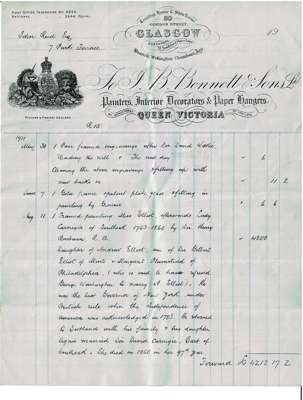 POST OFFICE TELEPHONE No. 4854
NATIONAL 3294 ROYAL
50
GORDON STREET,
GLASGOW
19
John Reid Esq
7 Park Terrace
To J. B. Bennett & Sons Ld
Painters, Interior Decorators & Paper Hangers
QUEEN VICTORIA
PICTURE & FRAMED DEALERS
May 30 1 Pair framed engravings after Sir David Wilkie,
Reading the Will & The rent day " 6
Cleaning the above engravings fitting up with
new backs &c " 11 2
June 7 1 Gold frame patent plate glass & fitting in
painting by " 6
Aug 11 1 Framed painting Miss Elliot afterwards Lady
Carnegie of Southesk 1763-1860 by Sir Henry
Raeburn R. A. " 4200
Daughter of Andrew Elliot, son of Sir Gilbert
Elliot of Minto & Margaret Plumstead of
Philadelphia, (who is said to have refused
George Washington to marry A Elliot). He
was the last Governor of New York under
British rule when the independence of
America was acknowledged in 1783. He returned
to Scotland with his family & his daughter
Agnes married Sir David Carnegie, Earl of
Southesk. She died in 1860 in her 97th year
Forward £ 4212 17 2